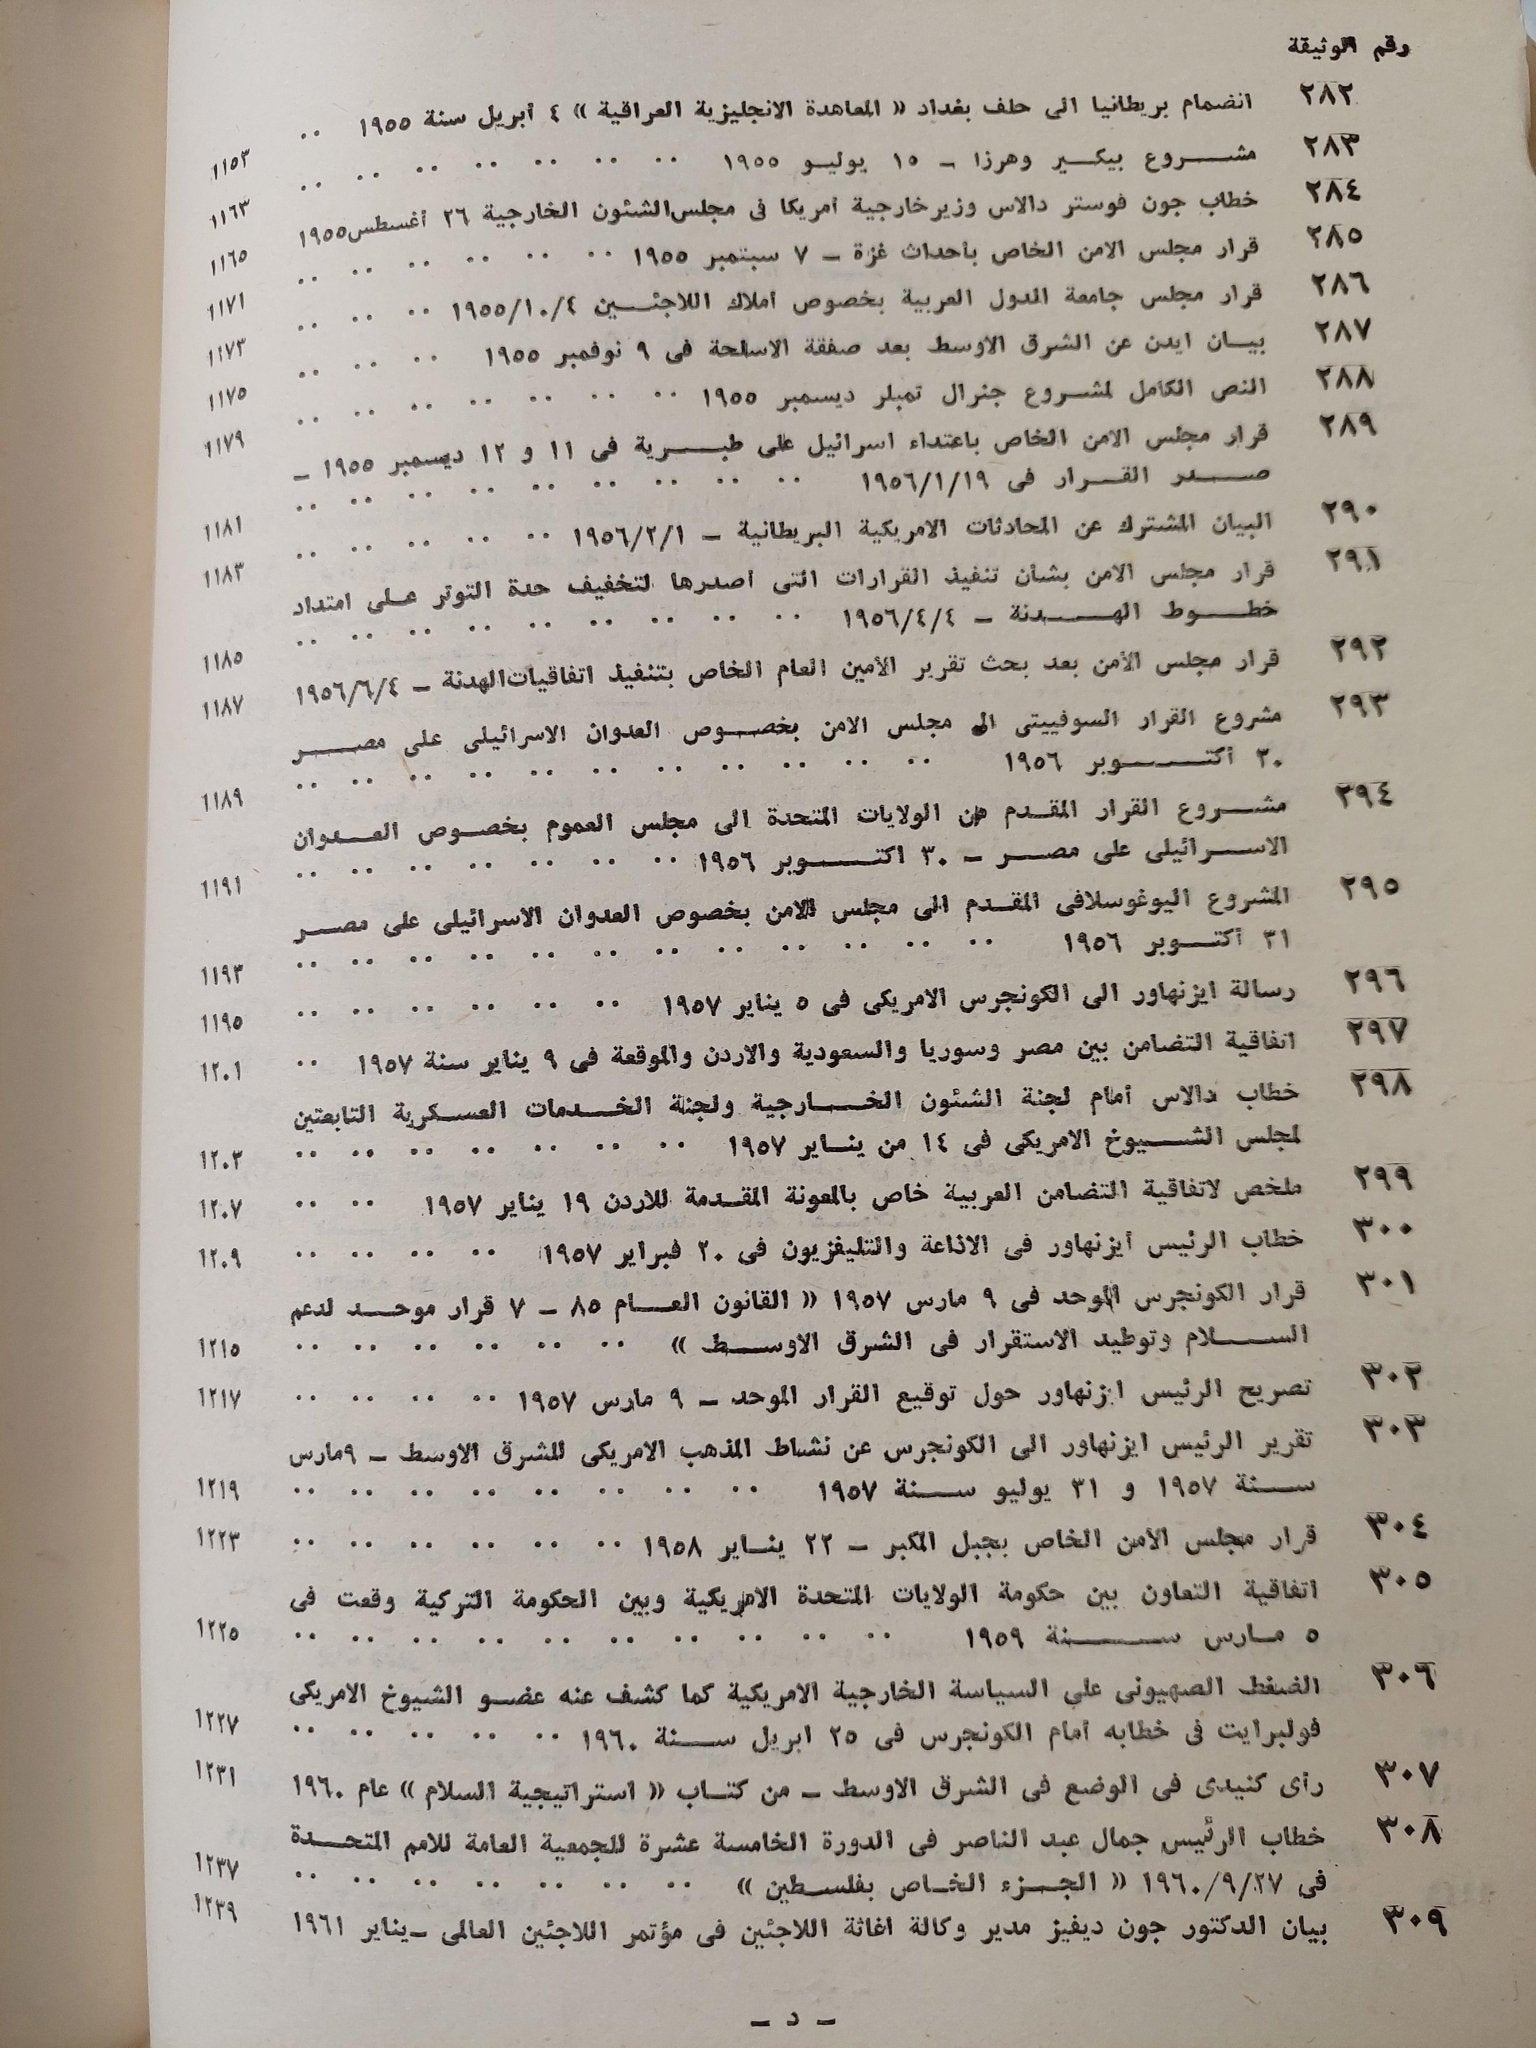 رقم الوثيقة
٢٨٢ انضمام بريطانيا الى حلف بغداد « المعاهدة الانجليزية العراقية » ٤ أبريل سنة ١٩٥٥ .. ١١٥٣
٢٨٣ مشـروع بيكـير وهرزا - ١٥ يوليـو ١٩٥٥ .. .. .. .. .. .. .. ١١٦٣
٢٨٤ خطاب جون فوستر دالاس وزير خارجية أمريكا فى مجلس الشئون الخارجية ٢٦ أغسطس ١٩٥٥ ١١٦٥
٢٨٥ قرار مجلس الامن الخاص بأحداث غزة - ٧ سبتمبر ١٩٥٥ .. .. .. .. .. .. ١١٧١
٢٨٦ قرار مجلس جامعة الدول العربية بخصوص أملاك اللاجئـين ١٩٥٥/١٠/٤ .. .. .. ١١٧٣
٢٨٧ بيـان ايدن عن الشرق الاوسط بعد صفقة الاسلحة فى ٩ نوفمبر ١٩٥٥ .. .. .. ١١٧٥
٢٨٨ النص الكامل لمشـروع جنرال تمبلر ديسمبر ١٩٥٥ .. .. .. .. .. .. .. ١١٧٩
٢٨٩ قرار مجلس الامن الخاص باعتداء اسرائيل على طبـرية فى ١١ و ١٢ ديسمبر ١٩٥٥ -
صـدر القـرار فى ١٩٥٦/١/١٩ .. .. .. .. .. .. .. .. .. ١١٨١
٢٩٠ البيان المشترك عن المحادثات الامريكية البريطانية - ١٩٥٦/٢/١ .. .. .. .. .. ١١٨٣
٢٩١ قرار مجلس الامن بشأن تنفيذ القرارات التى أصدرها لتخفيف حدة التوتر عـلى امتداد
خطـوط الهـدنة - ١٩٥٦/٤/٤ .. .. .. .. .. .. .. .. .. ١١٨٥
٢٩٢ قرار مجلس الأمن بعد بحث تقرير الأمين العام الخاص بتنفيذ اتفاقيات الهدنة - ١٩٥٦/٦/٤ ١١٨٧
٢٩٣ مشروع القرار السوفييتى الى مجلس الامن بخصـوص العدوان الاسرائيلى على مصـر
٣٠ أكتـوبر ١٩٥٦ .. .. .. .. .. .. .. .. .. .. .. ١١٨٩
٢٩٤ مشـروع القرار المقـدم من الولايات المتحدة الى مجلس العموم بخصوص العـدوان
الاسـرائيلى على مصـر - ٣٠ اكتـوبر ١٩٥٦ .. .. .. .. .. .. .. ١١٩١
٢٩٥ المشروع اليوغوسلافى المقـدم الى مجلس الامن بخصوص العدوان الاسرائيلى على مصـر
٣١ أكتـوبر ١٩٥٦ .. .. .. .. .. .. .. .. .. .. .. .. ١١٩٣
٢٩٦ رسالة ايزنهاور الى الكونجرس الامريكى فى ٥ يناير ١٩٥٧ .. .. .. .. .. .. ١١٩٥
٢٩٧ اتفاقية التضامن بين مصر وسوريا والسعودية والاردن والموقعة فى ٩ يناير سنة ١٩٥٧ .. ١٢٠١
٢٩٨ خطاب دالاس أمام لجنة الشئون الخـارجية ولجنة الخـدمات العسـكرية التابعتين
لمجلس الشـيوخ الامريكى فى ١٤ من ينـاير ١٩٥٧ .. .. .. .. .. .. .. ١٢٠٣
٢٩٩ ملخص لاتفاقية التضامن العربية خاص بالمعونة المقـدمة للاردن ١٩ يناير ١٩٥٧ .. .. ١٢٠٧
٣٠٠ خطاب الرئيس أيزنهاور فى الاذاعة والتليفزيون فى ٢٠ فبراير ١٩٥٧ .. .. .. .. ١٢٠٩
٣٠١ قرار الكونجرس الموحد فى ٩ مارس ١٩٥٧ « القانون العـام ٨٥ - ٧ قرار موحـد لدعم
السـلام وتوطيد الاستقرار فى الشرق الاوسـط » .. .. .. .. .. .. ١٢١٥
٣٠٢ تصريح الرئيس ايزنهاور حول توقيع القرار الموحد - ٩ مارس ١٩٥٧ .. .. .. .. ١٢١٧
٣٠٣ تقرير الرئيس ايزنهاور الى الكونجرس عن نشاط المذهب الامريكى للشرق الاوسط - ٩ مارس
سـنة ١٩٥٧ و ٣١ يوليو سـنة ١٩٥٧ .. .. .. .. .. .. .. .. .. ١٢١٩
٣٠٤ قرار مجلس الامن الخاص بجبل المكبر - ٢٢ ينـاير ١٩٥٨ .. .. .. .. .. .. ١٢٢٣
٣٠٥ اتفاقية التعاون بين حكومة الولايات المتحدة الامريكية وبين الحكومة التركية وقعت فى
٥ مـارس سـنة ١٩٥٩ .. .. .. .. .. .. .. .. .. .. ١٢٢٥
٣٠٦ الضغط الصهيونى على السياسة الخارجية الامريكية كما كشف عنه عضـو الشيوخ الامريكى
فولبرايت فى خطابه أمام الكونجرس فى ٢٥ ابريل سـنة ١٩٦٠ .. .. .. .. .. ١٢٢٧
٣٠٧ رأى كنيدى فى الوضع فى الشرق الاوسط - من كتـاب « استراتيجية السلام » عام ١٩٦٠ ١٢٣١
٣٠٨ خطاب الرئيس جمال عبد الناصر فى الدورة الخامسة عشرة للجمعية العامة للامم المتحـدة
فى ١٩٦٠/٩/٢٧ « الجـزء الخـاص بفلسـطين » .. .. .. .. .. .. .. ١٢٣٧
٣٠٩ بيان الدكتور جون ديفيز مدير وكالة اغاثة اللاجئين فى مؤتمر اللاجئين العالمى - يناير ١٩٦١ ١٢٣٩
- د -